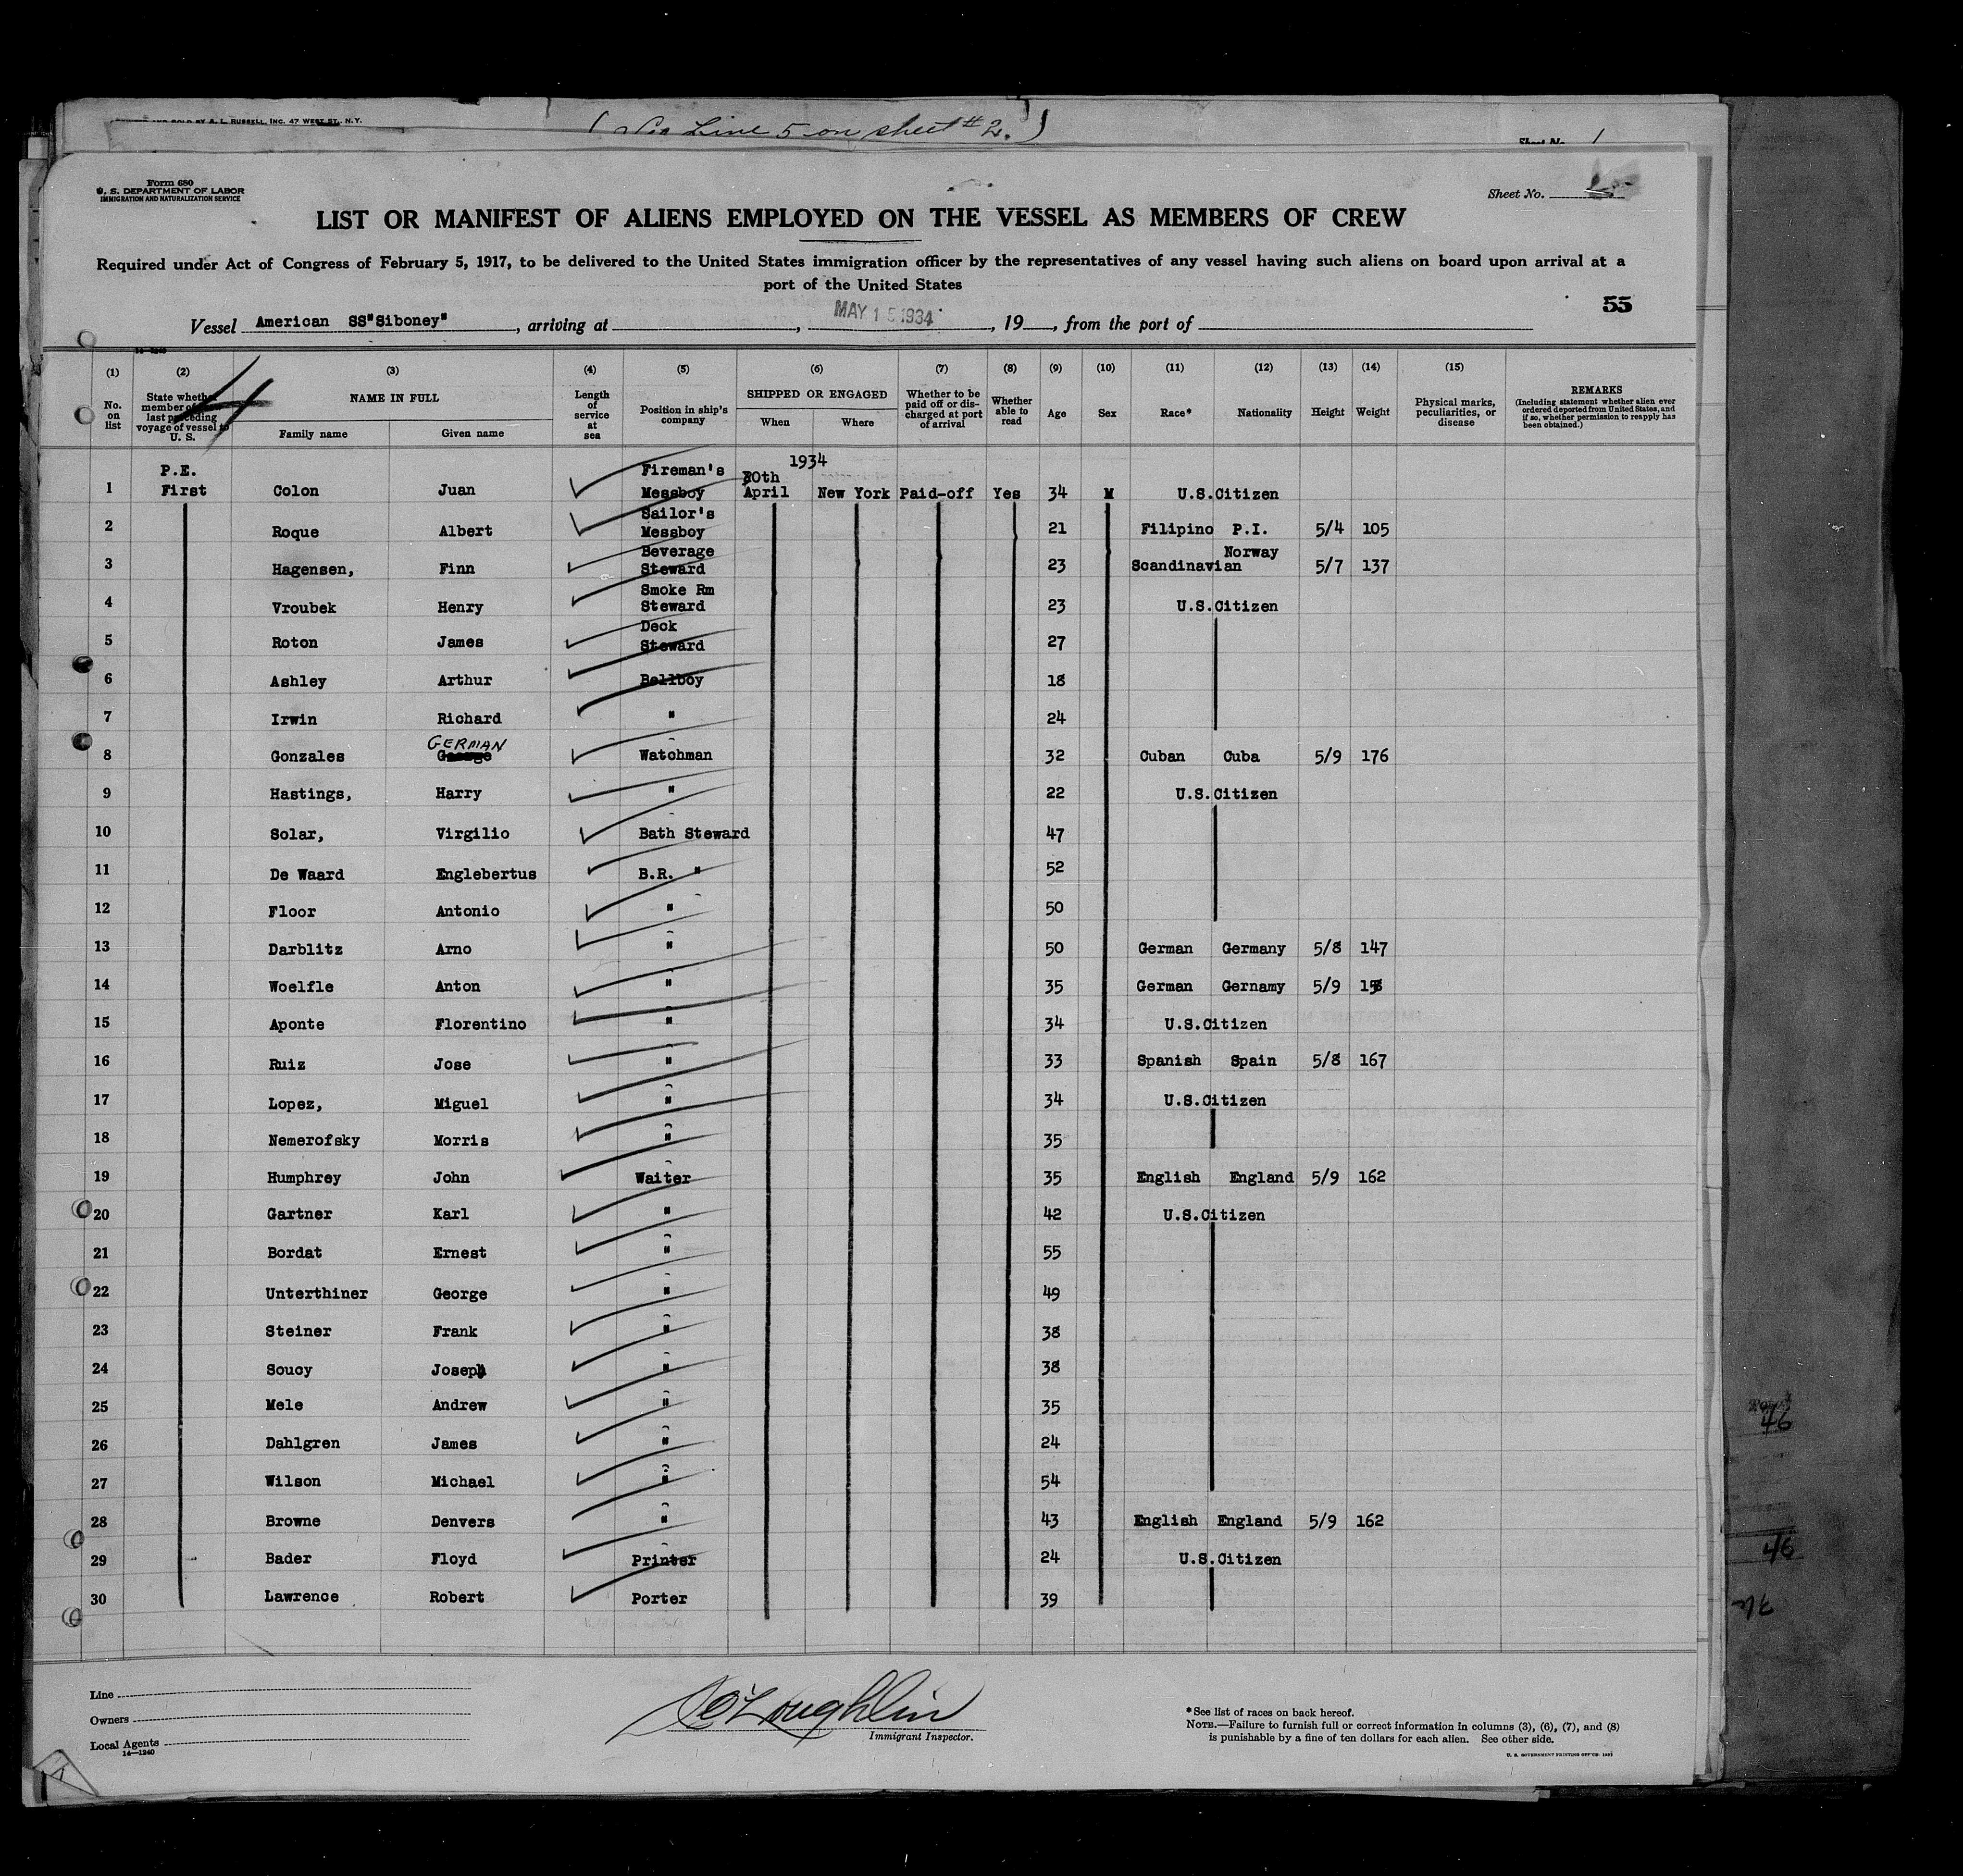 AND SOLD BY A. L. RUSSELL, INC. 47 WEST ST., N.Y.
Line 5 on sheet #2.)
Sheet No. 1
Form 680
U. S. DEPARTMENT OF LABOR
IMMIGRATION AND NATURALIZATION SERVICE
Sheet No.
LIST OR MANIFEST OF ALIENS EMPLOYED ON THE VESSEL AS MEMBERS OF CREW
Required under Act of Congress of February 5, 1917, to be delivered to the United States immigration officer by the representatives of any vessel having such aliens on board upon arrival at a
port of the United States
55
Vessel American SS"Siboney", arriving at , MAY 15 1934, 19 , from the port of
14—1240
(1) (2) (3) (4) (5) (6) (7) (8) (9) (10) (11) (12) (13) (14) (15)
No. on list
State whether member of crew last preceding voyage of vessel to U. S.
NAME IN FULL
Family name Given name
Length of service at sea
Position in ship's company
SHIPPED OR ENGAGED
When Where
Whether to be paid off or discharged at port of arrival
Whether able to read
Age Sex Race* Nationality Height Weight
Physical marks, peculiarities, or disease
REMARKS
(Including statement whether alien ever ordered deported from United States, and if so, whether permission to reapply has been obtained.)
1934
1 P.E. First Colon Juan Fireman's Messboy 20th April New York Paid-off Yes 34 M U.S.Citizen
2 Roque Albert Sailor's Messboy 21 Filipino P.I. 5/4 105
3 Hagensen, Finn Beverage Steward 23 Scandinavian Norway 5/7 137
4 Vroubek Henry Smoke Rm Steward 23 U.S.Citizen
5 Roton James Deck Steward 27
6 Ashley Arthur Bellboy 18
7 Irwin Richard " 24
8 Gonzales GERMAN George Watchman 32 Cuban Cuba 5/9 176
9 Hastings, Harry " 22 U.S.Citizen
10 Solar, Virgilio Bath Steward 47
11 De Waard Englebertus B.R. " 52
12 Floor Antonio " 50
13 Darblitz Arno " 50 German Germany 5/8 147
14 Woelfle Anton " 35 German Gernamy 5/9
15 Aponte Florentino " 34 U.S.Citizen
16 Ruiz Jose " 33 Spanish Spain 5/8 167
17 Lopez, Miguel " 34 U.S.Citizen
18 Nemerofsky Morris " 35
19 Humphrey John Waiter 35 English England 5/9 162
20 Gartner Karl " 42 U.S.Citizen
21 Bordat Ernest " 55
22 Unterthiner George " 49
23 Steiner Frank " 38
24 Soucy Joseph " 38
25 Mele Andrew " 35
26 Dahlgren James " 24
27 Wilson Michael " 54
28 Browne Denvers " 43 English England 5/9 162
29 Bader Floyd Printer 24 U.S.Citizen
30 Lawrence Robert Porter 39
46
46
Line
Owners
Local Agents
14—1240
O'Loughlin
Immigrant Inspector.
*See list of races on back hereof.
NOTE.—Failure to furnish full or correct information in columns (3), (6), (7), and (8)
is punishable by a fine of ten dollars for each alien. See other side.